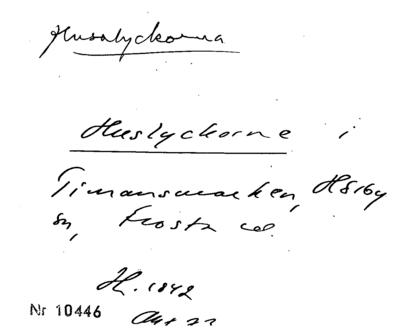 Husalyckorna
Huslyckorne i
Timansmarken, Hörby
sn, Frosta
H. 1842
Akt 22
Nr 10446